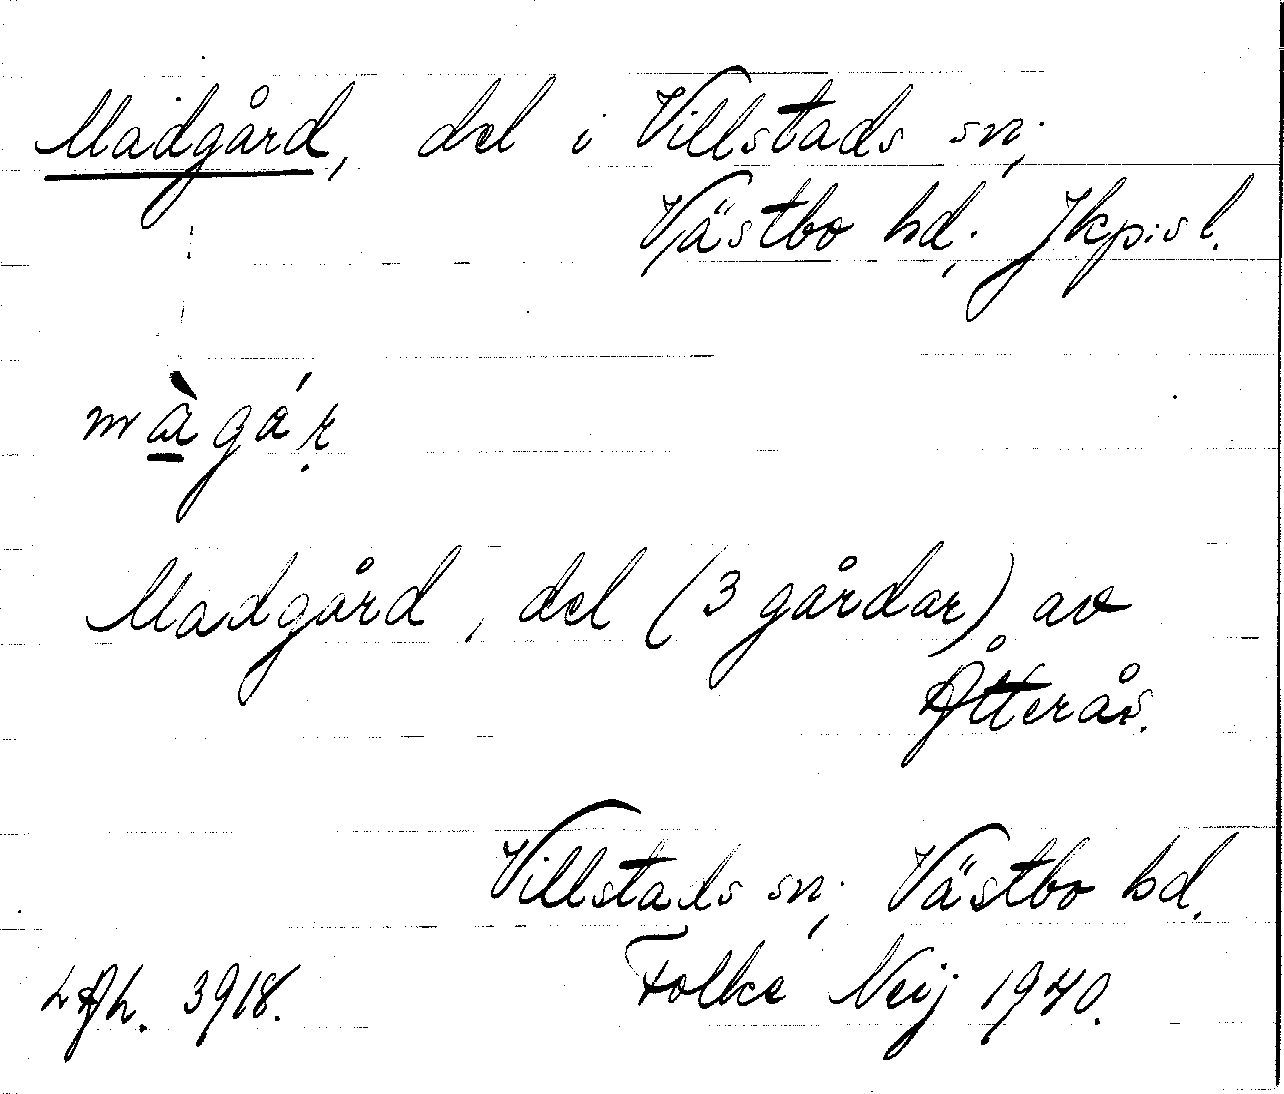 Madgård, del i Villstads sn;
Västbo hd; Jkpis l.
màgár
Madgård, del (3 gårdar) av
Åtterås.
Villstads sn; Västbo hd.
LAh. 3918. Folke Neij 1940.